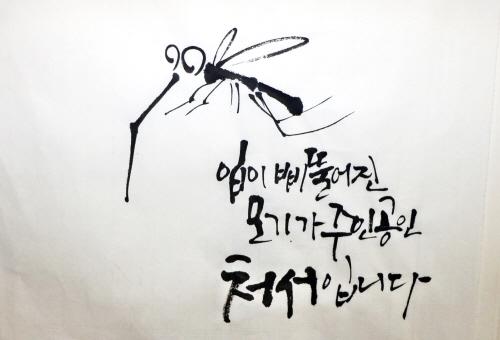 입이 삐뚤어진
모기가 주인공인
처서입니다